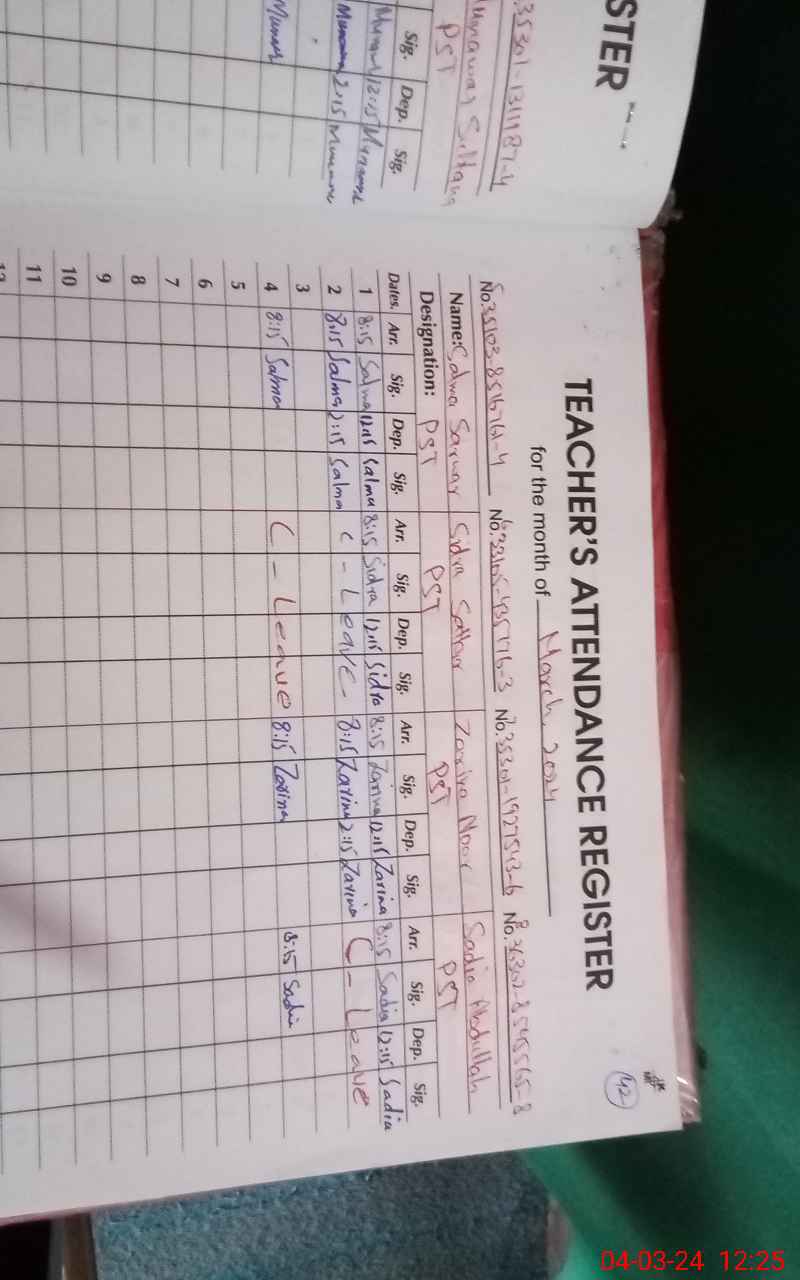 STER
35301-1311187-4
Munawar Sultana
PST
Sig. Dep. Sig.
12:15
2:15
42
TEACHER'S ATTENDANCE REGISTER
for the month of March, 2024
5 No. 6 No. 7 No. 35301-1927543-6 8 No.
Name: Salma Sarwar Sidra Sattar Zarina Noor Sadia Abdullah
Designation: PST PST PST PST
Dates. Arr. Sig. Dep. Sig. Arr. Sig. Dep. Sig. Arr. Sig. Dep. Sig. Arr. Sig. Dep. Sig.
1 8:15 Salma 12:15 Salma 8:15 Sidra 12:15 Sidra 8:15 Zarina 12:15 Zarina 8:15 Sadia 12:15 Sadia
2 8:15 Salma 2:15 Salma C - Leave - 8:15 Zarina 2:15 Zarina C - Leave
3
4 8:15 Salma C - Leave 8:15 Zarina 8:15 Sadia
5
6
7
8
9
10
11
12
04-03-24 12:25